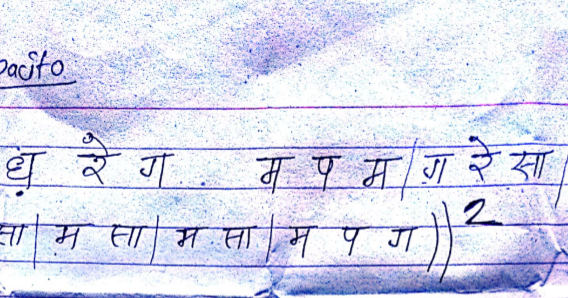 pacito
ध़ रे ग . म प म | ग़ रे सा |
सा | म सा | म सा | म प ग ))²